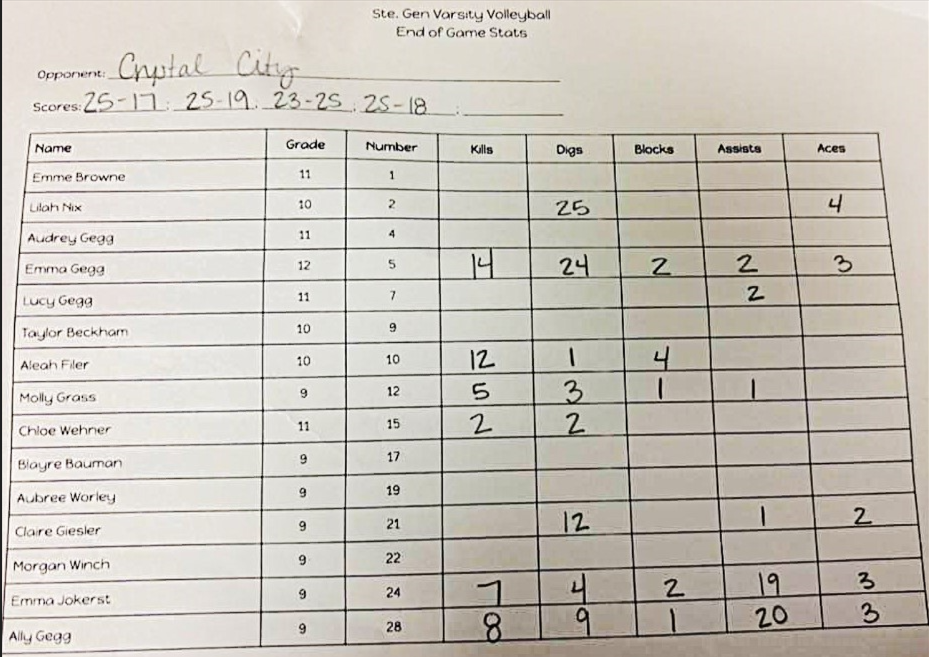 Ste. Gen Varsity Volleyball
End of Game Stats
Opponent: Crystal City
Scores: 25-17 : 25-19 : 23-25 : 25-18 :
Name Grade Number Kills Digs Blocks Assists Aces
Emme Browne 11 1
Lilah Nix 10 2 25 4
Audrey Gegg 11 4
Emma Gegg 12 5 14 24 2 2 3
Lucy Gegg 11 7 2
Taylor Beckham 10 9
Aleah Filer 10 10 12 1 4
Molly Grass 9 12 5 3 1 1
Chloe Wehner 11 15 2 2
Blayre Bauman 9 17
Aubree Worley 9 19
Claire Giesler 9 21 12 1 2
Morgan Winch 9 22
Emma Jokerst 9 24 7 4 2 19 3
Ally Gegg 9 28 8 9 1 20 3